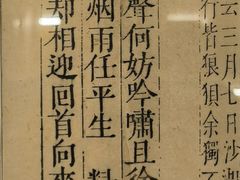 云三月七日沙湖
行皆狼狽余獨不
聲何妨吟嘯且徐
烟雨任平生 料
却相迎回首向來